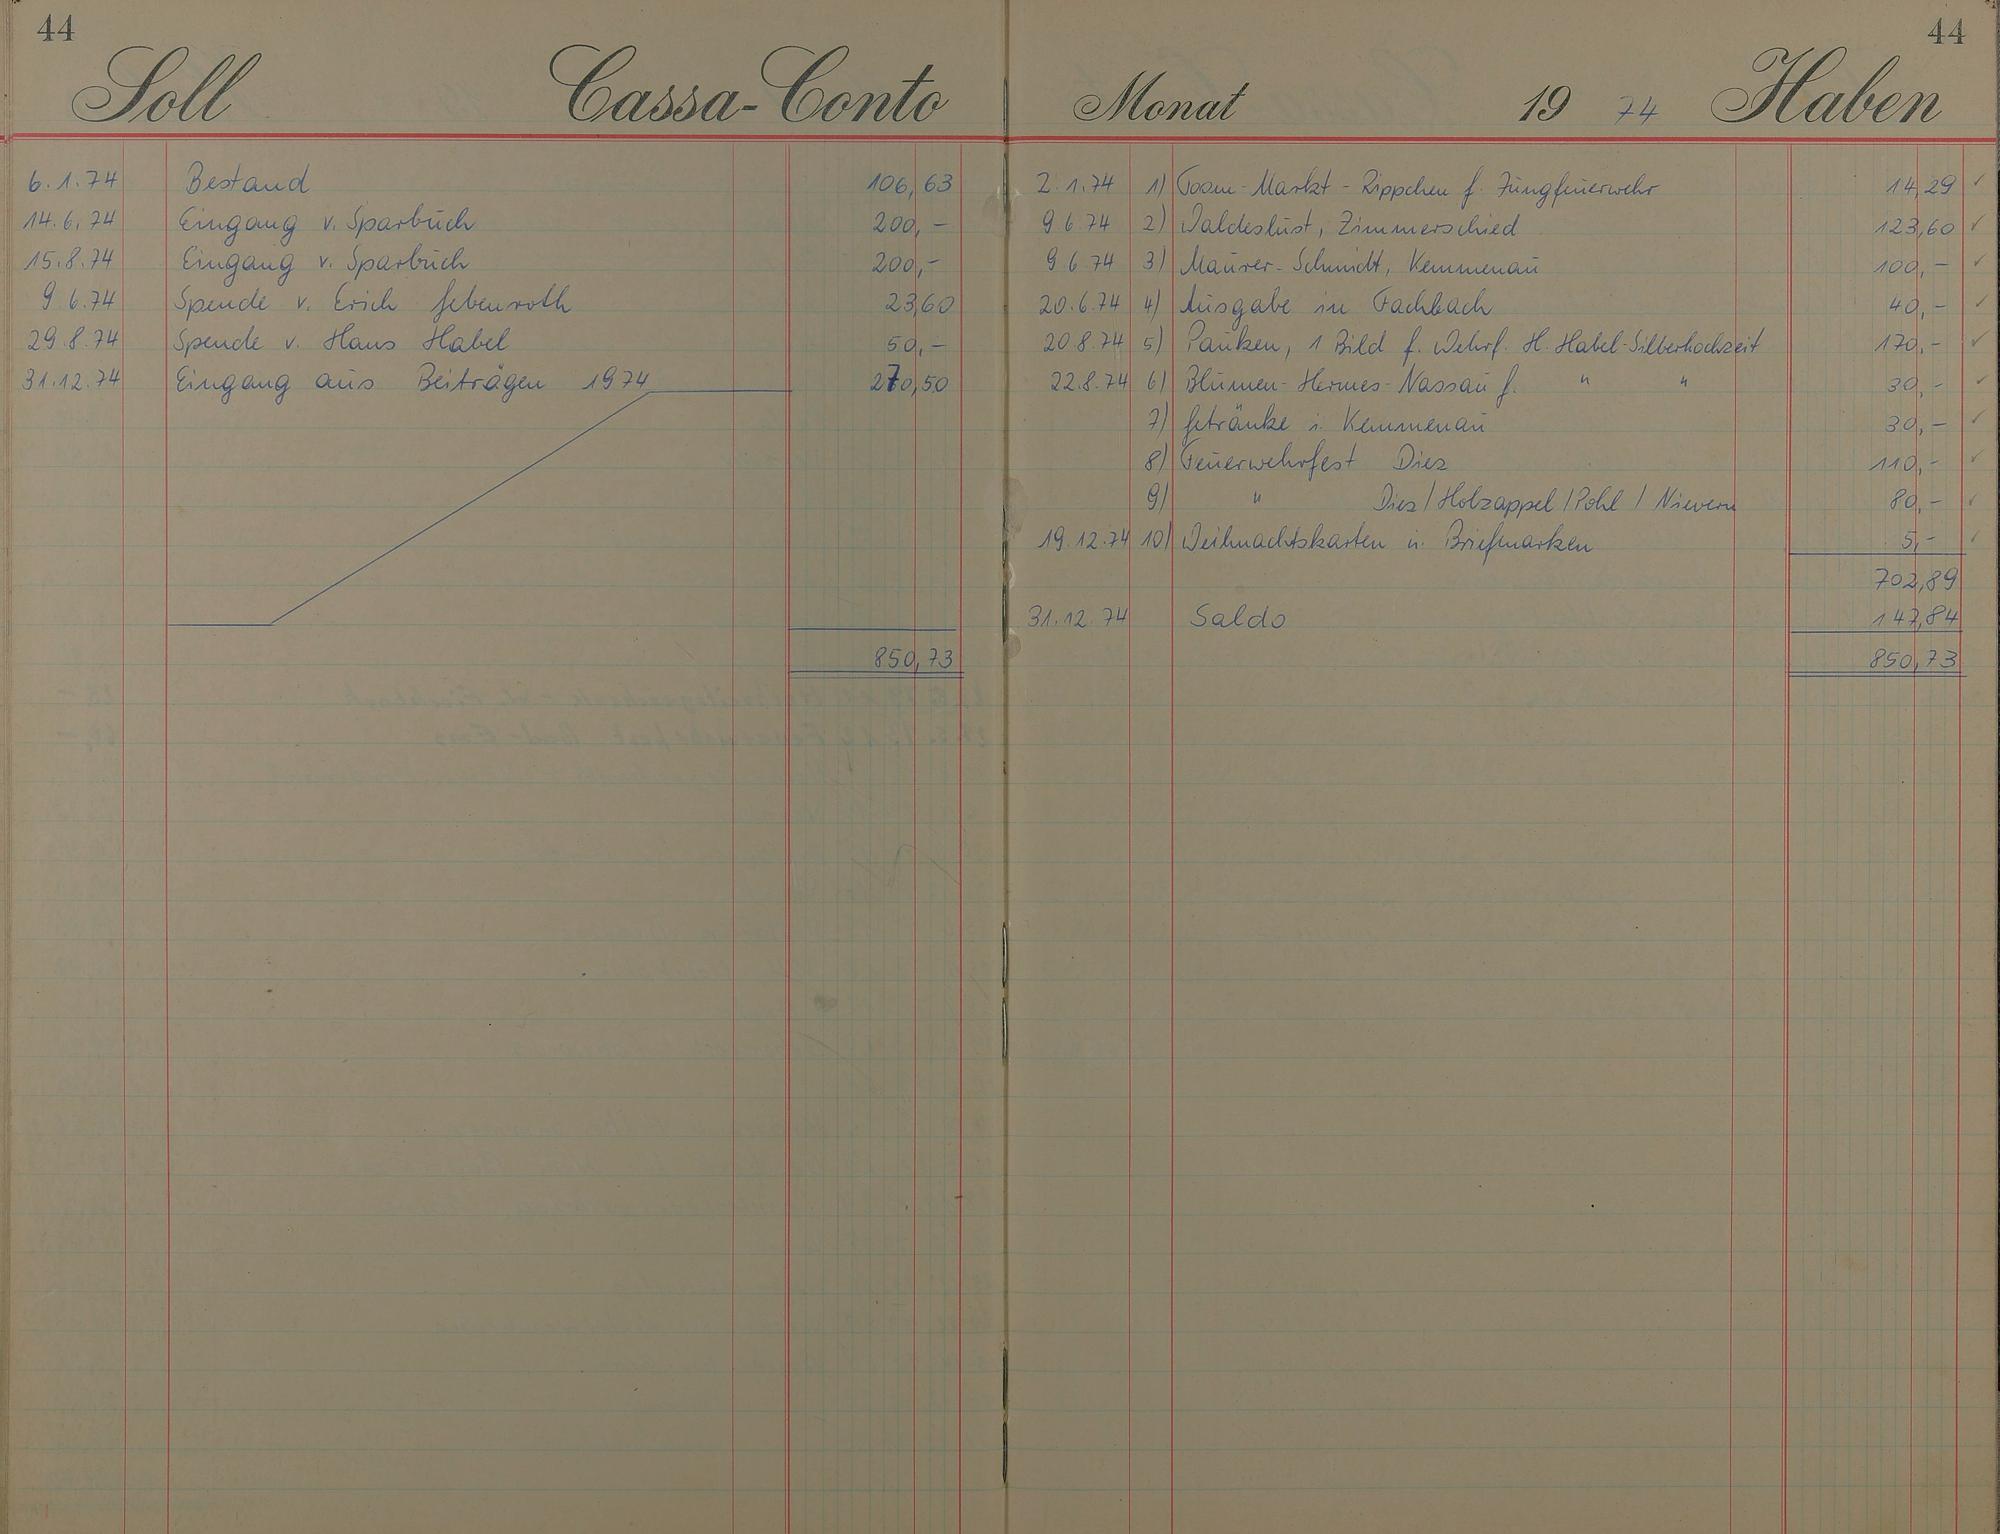 44
Soll Cassa-Conto
6.1.74 Bestand 106,63
14.6.74 Eingang v. Sparbuch 200,–
15.8.74 Eingang v. Sparbuch 200,–
9.6.74 Spende v. Erich Gebenroth 23,60
29.8.74 Spende v. Hans Habel 50,–
31.12.74 Eingang aus Beiträgen 1974 270,50
850,73
44
Monat 19 74 Haben
2.1.74 1) Toom-Markt - Rippchen f. Jungfeuerwehr 14,29 ✓
9 6 74 2) Waldeslust, Zimmerschied 123,60 ✓
9 6 74 3) Maurer-Schmidt, Kemmenau 100,– ✓
20.6.74 4) Ausgabe in Fachbach 40,– ✓
20.8.74 5) Pauken, 1 Bild f. Wehrf. H. Habel-Silberhochzeit 170,– ✓
22.8.74 6) Blumen-Hermes-Nassau f. " " 30,– ✓
7) Getränke i. Kemmenau 30,– ✓
8) Feuerwehrfest Diez 110,– ✓
9) " Diez / Holzappel / Pohl / Nievern 80,– ✓
19.12.74 10) Weihnachtskarten u. Briefmarken 5,– ✓
702,89
31.12.74 Saldo 147,84
850,73